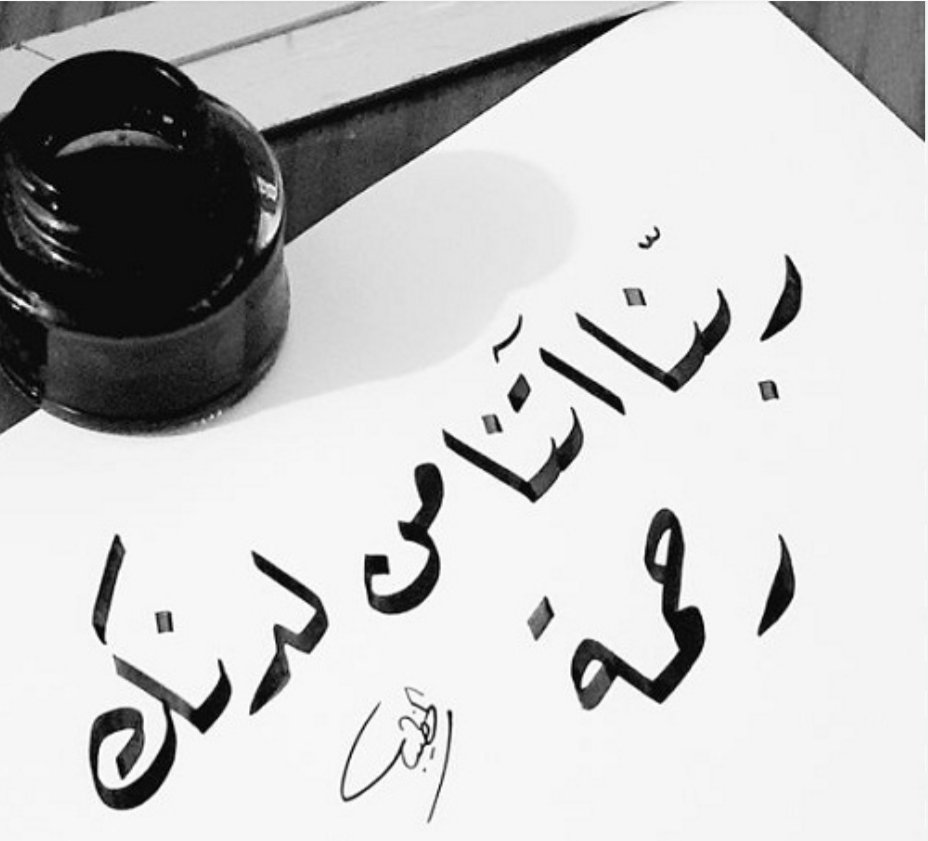 ربّنا آتنا من لدنك
رحمة